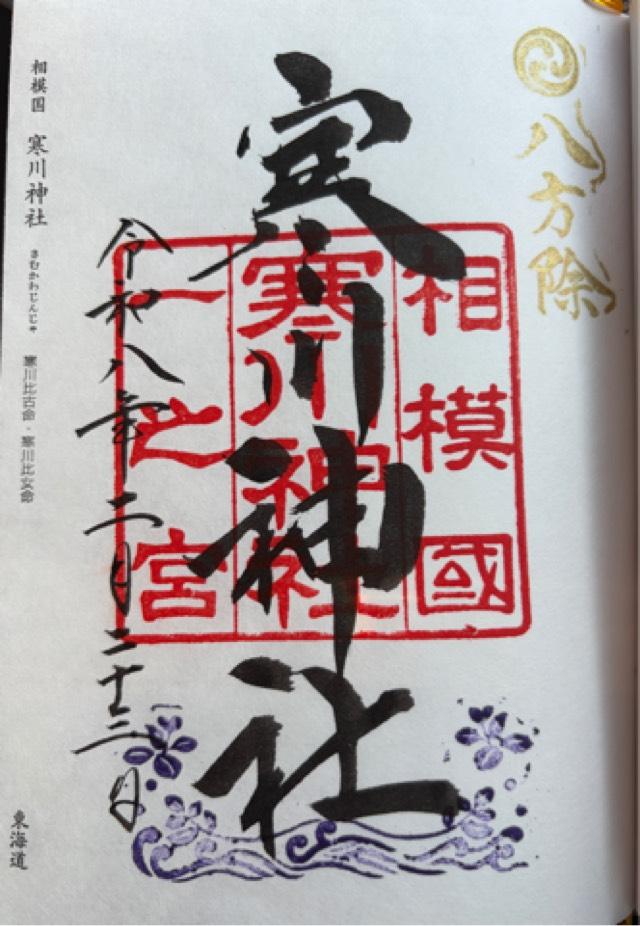 八方除
寒川神社
相模國
寒川神社
一之宮
令和八年二月二十三日
相模国 寒川神社 さむかわじんじゃ 寒川比古命・寒川比女命
東海道